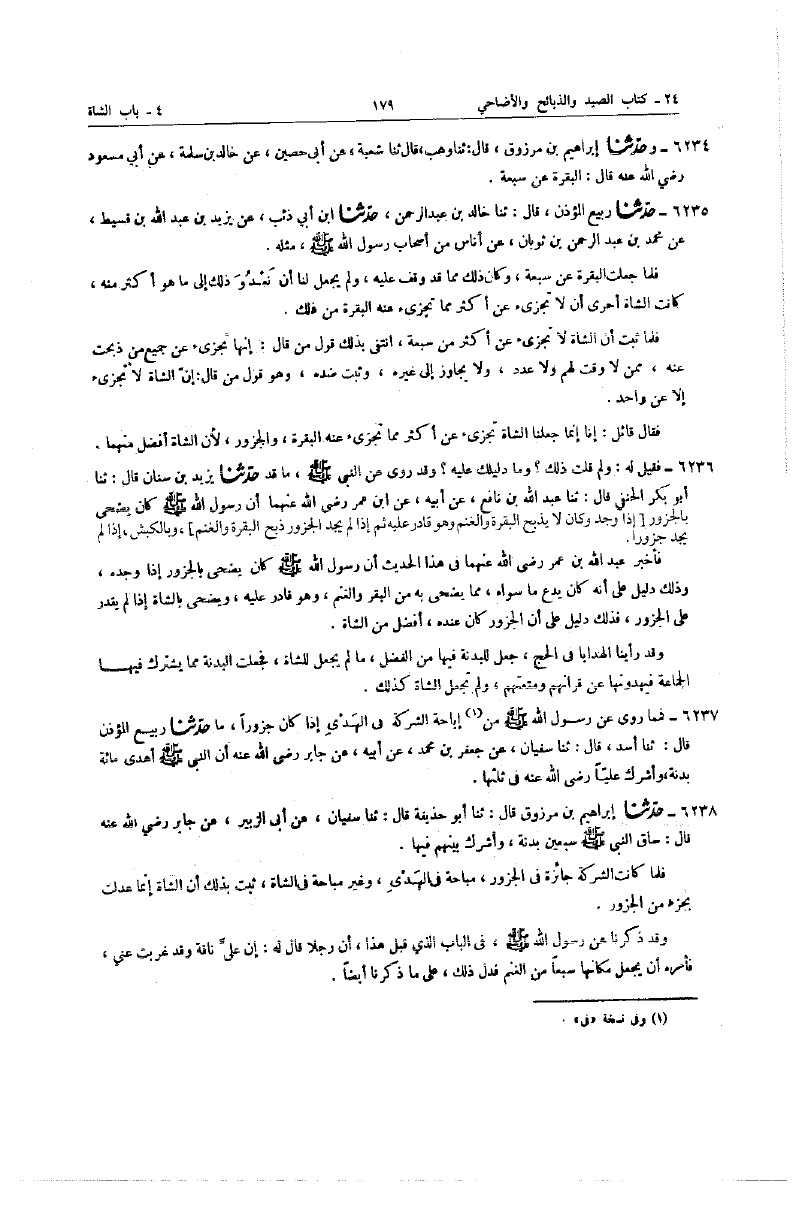 ٢٤ ـ كتاب الصيد والذبائح والأضاحي ١٧٩ ٤ ـ باب الشاة
٦٢٣٤ ـ وحدثنا إبراهيم بن مرزوق ، قال: ثنا وهب، قال ثنا شعبة ، عن أبى حصين ، عن خالد بن سلمة ، عن أبي مسعود
رضي الله عنه قال : البقرة عن سبعة .
٦٢٣٥ ـ حدثنا ربيع المؤذن ، قال : ثنا خالد بن عبدالرحمن ، حدثنا ابن أبي ذئب ، عن يزيد بن عبد الله بن قسيط ،
عن محمد بن عبد الرحمن بن ثوبان ، عن أناس من أصحاب رسول الله ﷺ ، مثله .
فلما جعلت البقرة عن سبعة ، وكان ذلك مما قد وقف عليه ، ولم يجعل لنا أن نَعْدُوَ ذلك إلى ما هو أكثر منه ،
كانت الشاة أحرى أن لا تجزىء عن أكثر مما تجزىء عنه البقرة من ذلك .
فلما ثبت أن الشاة لا تجزىء عن أكثر من سبعة ، انتفى بذلك قول من قال : إنها تجزىء عن جميع من ذبحت
عنه ، ممن لا وقت لهم ولا عدد ، ولا يجاوز إلى غيره ، وثبت ضده ، وهو قول من قال: إنّ الشاة لا تجزىء
إلا عن واحد .
فقال قائل : إنا إنما جعلنا الشاة تجزىء عن أكثر مما تجزىء عنه البقرة ، والجزور ، لأن الشاة أفضل منهما .
٦٢٣٦ ـ فقيل له : ولم قلت ذلك ؟ وما دليلك عليه ؟ وقد روى عن النبي ﷺ ، ما قد حدثنا يزيد بن سنان قال : ثنا
أبو بكر الحنفي قال : ثنا عبد الله بن نافع ، عن أبيه ، عن ابن عمر رضى الله عنهما أن رسول الله ﷺ كان يضحى
بالجزور [ إذا وجد وكان لا يذبح البقرة والغنم وهو قادر عليه ثم إذا لم يجد الجزور ذبح البقرة والغنم ] ، وبالكبش ، إذا لم
يجد جزورا .
فأخبر عبد الله بن عمر رضى الله عنهما فى هذا الحديث أن رسول الله ﷺ كان يضحى بالجزور إذا وجده ،
وذلك دليل على أنه كان يدع ما سواه ، مما يضحى به من البقر والغنم ، وهو قادر عليه ، ويضحى بالشاة إذا لم يقدر
على الجزور ، فذلك دليل على أن الجزور كان عنده ، أفضل من الشاة .
وقد رأينا الهدايا فى الحج ، جعل للبدنة فيها من الفضل ، ما لم يجعل للشاة ، فجعلت البدنة مما يشترك فيهـا
الجماعة فيهدونها عن قرانهم ومتعتهم ، ولم تجعل الشاة كذلك .
٦٢٣٧ ـ فما روى عن رسـول الله ﷺ من(١) إباحة الشركة فى الهَدْىِ إذا كان جزوراً ، ما حدثنا ربيـع المؤذن
قال : ثنا أسد ، قال : ثنا سفيان ، عن جعفر بن محمد ، عن أبيه ، عن جابر رضى الله عنه أن النبي ﷺ أهدى مائة
بدنة، وأشرك عليّاً رضى الله عنه فى ثلثها .
٦٢٣٨ ـ حدثنا إبراهيم بن مرزوق قال : ثنا أبو حذيفة قال : ثنا سفيان ، عن أبى الزبير ، عن جابر رضي الله عنه
قال : ساق النبي ﷺ سبعين بدنة ، وأشرك بينهم فيها .
فلما كانت الشركة جائزة فى الجزور ، مباحة فى الهَدْىِ ، وغير مباحة فى الشاة ، ثبت بذلك أن الشاة إنما عدلت
بجزء من الجزور .
وقد ذكرنا عن رسول الله ﷺ ، فى الباب الذي قبل هذا ، أن رجلا قال له : إن علىّ ناقة وقد غربت عني ،
فأمره أن يجعل مكانها سبعاً من الغنم فدل ذلك ، على ما ذكرنا أيضاً .
(١) وفى نسخة «فى» .